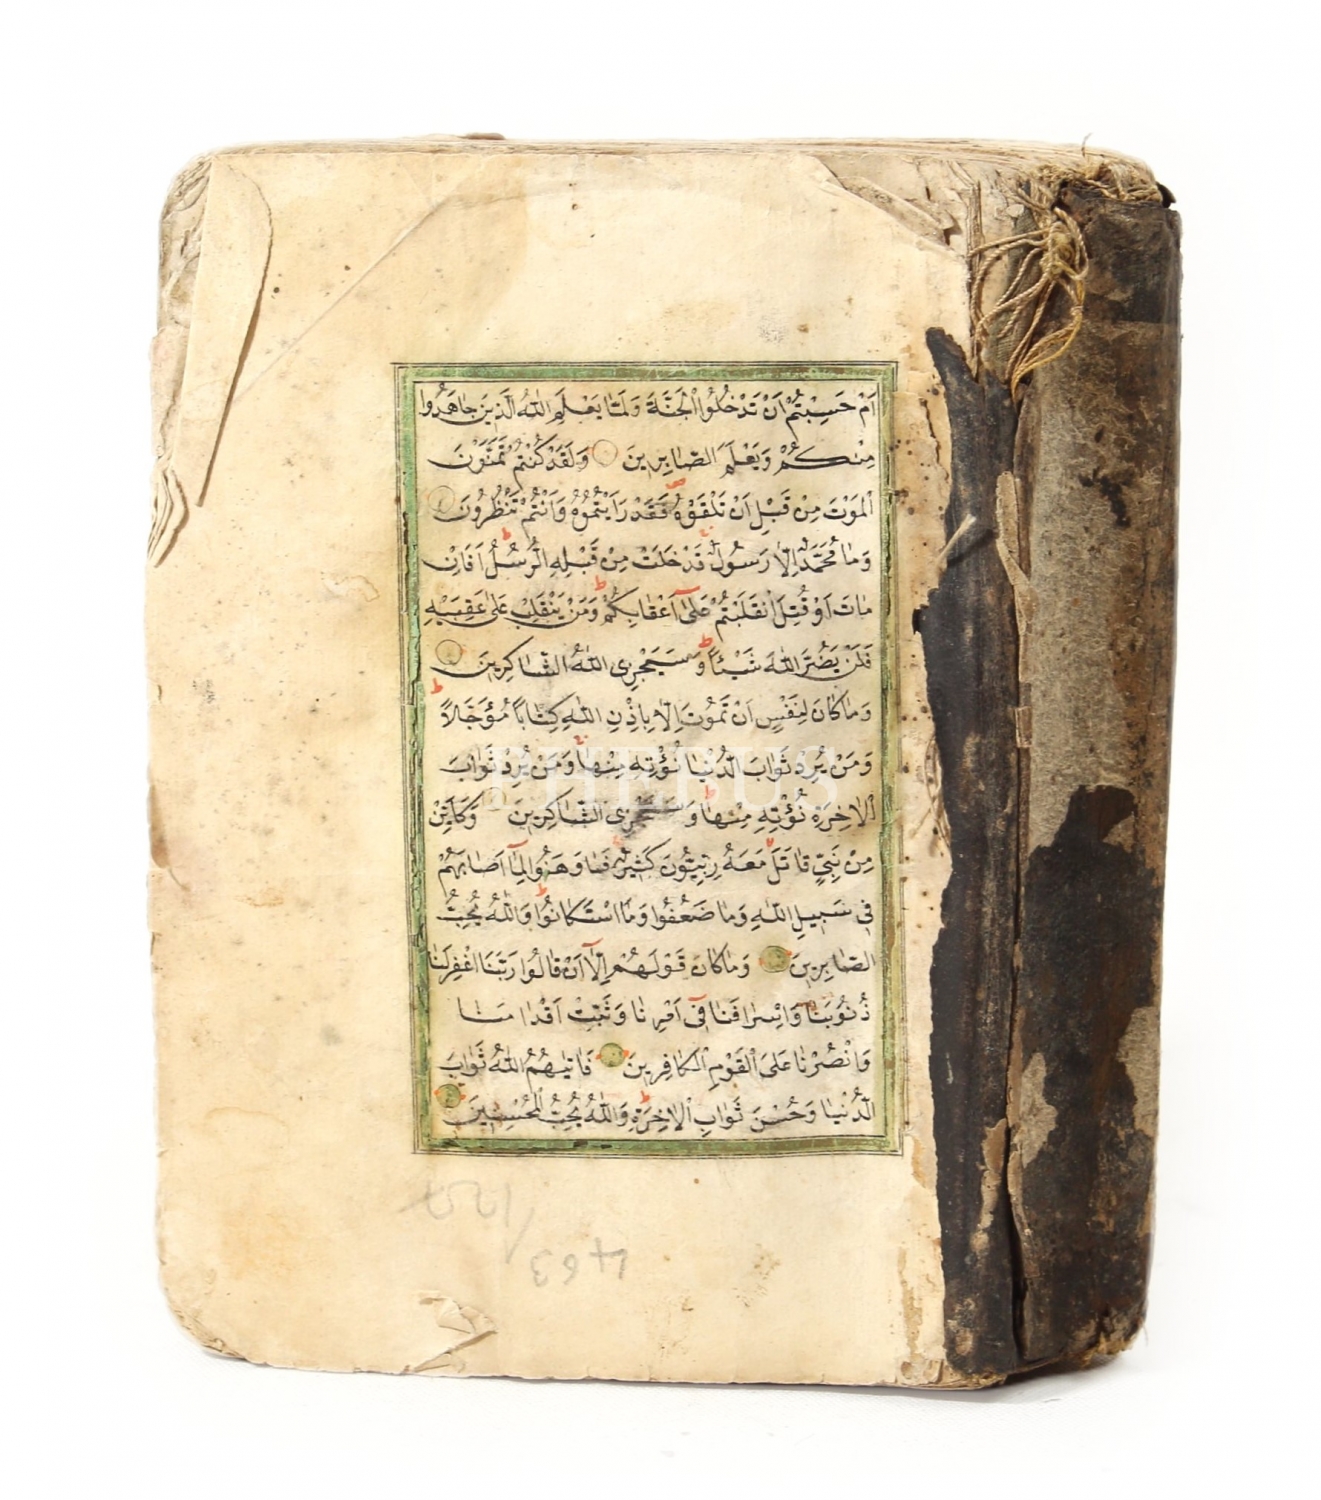 اَمْ حَسِبْتُمْ اَنْ تَدْخُلُوا الْجَنَّةَ وَلَمَّا يَعْلَمِ اللّٰهُ الَّذِينَ جَاهَدُوا
مِنْكُمْ وَيَعْلَمَ الصَّابِرِينَ وَلَقَدْ كُنْتُمْ تَمَنَّوْنَ
الْمَوْتَ مِنْ قَبْلِ اَنْ تَلْقَوْهُ فَقَدْ رَاَيْتُمُوهُ وَاَنْتُمْ تَنْظُرُونَ
وَمَا مُحَمَّدٌ اِلَّا رَسُولٌ قَدْ خَلَتْ مِنْ قَبْلِهِ الرُّسُلُ اَفَاِنْ
مَاتَ اَوْ قُتِلَ انْقَلَبْتُمْ عَلٰٓى اَعْقَابِكُمْ وَمَنْ يَنْقَلِبْ عَلٰى عَقِبَيْهِ
فَلَنْ يَضُرَّ اللّٰهَ شَيْئًا وَسَيَجْزِى اللّٰهُ الشَّاكِرِينَ
وَمَا كَانَ لِنَفْسٍ اَنْ تَمُوتَ اِلَّا بِاِذْنِ اللّٰهِ كِتَابًا مُؤَجَّلًا
وَمَنْ يُرِدْ ثَوَابَ الدُّنْيَا نُؤْتِهِ مِنْهَا وَمَنْ يُرِدْ ثَوَابَ
الْاٰخِرَةِ نُؤْتِهِ مِنْهَا وَسَنَجْزِى الشَّاكِرِينَ وَكَاَيِّنْ
مِنْ نَبِىٍّ قَاتَلَ مَعَهُ رِبِّيُّونَ كَثِيرٌ فَمَا وَهَنُوا لِمَٓا اَصَابَهُمْ
فِى سَبِيلِ اللّٰهِ وَمَا ضَعُفُوا وَمَا اسْتَكَانُوا وَاللّٰهُ يُحِبُّ
الصَّابِرِينَ وَمَا كَانَ قَوْلَهُمْ اِلَّٓا اَنْ قَالُوا رَبَّنَا اغْفِرْ لَنَا
ذُنُوبَنَا وَاِسْرَافَنَا فِٓى اَمْرِنَا وَثَبِّتْ اَقْدَامَنَا
وَانْصُرْنَا عَلَى الْقَوْمِ الْكَافِرِينَ فَاٰتٰيهُمُ اللّٰهُ ثَوَابَ
الدُّنْيَا وَحُسْنَ ثَوَابِ الْاٰخِرَةِ وَاللّٰهُ يُحِبُّ الْمُحْسِنِينَ
PHEBUS
463